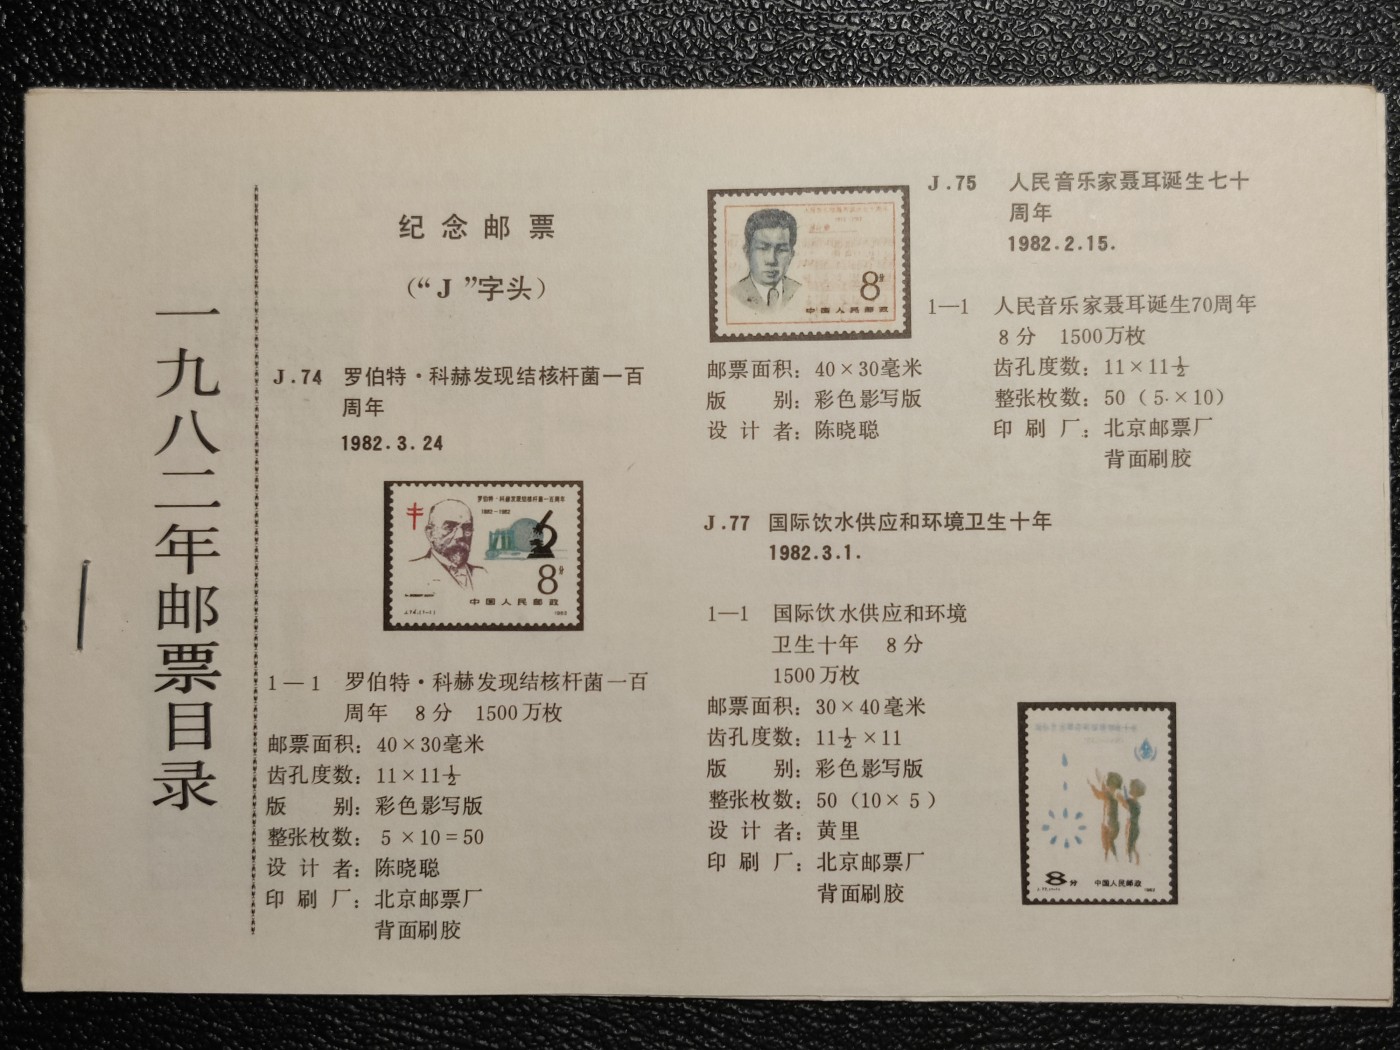 一九八二年邮票目录
纪念邮票
（“J”字头）
J.74 罗伯特·科赫发现结核杆菌一百
周年
1982.3.24
罗伯特·科赫发现结核杆菌一百周年
1882—1982
8分
中国人民邮政
1—1 罗伯特·科赫发现结核杆菌一百
周年 8分 1500万枚
邮票面积：40×30毫米
齿孔度数：11×11½
版 别：彩色影写版
整张枚数：5×10=50
设计者：陈晓聪
印刷厂：北京邮票厂
背面刷胶
8分
中国人民邮政
J.75 人民音乐家聂耳诞生七十
周年
1982.2.15.
1—1 人民音乐家聂耳诞生70周年
8分 1500万枚
邮票面积：40×30毫米
版 别：彩色影写版
设计者：陈晓聪
齿孔度数：11×11½
整张枚数：50（5·×10）
印刷厂：北京邮票厂
背面刷胶
J.77 国际饮水供应和环境卫生十年
1982.3.1.
1—1 国际饮水供应和环境
卫生十年 8分
1500万枚
邮票面积：30×40毫米
齿孔度数：11½×11
版 别：彩色影写版
整张枚数：50（10×5）
设计者：黄里
印刷厂：北京邮票厂
背面刷胶
8分 中国人民邮政